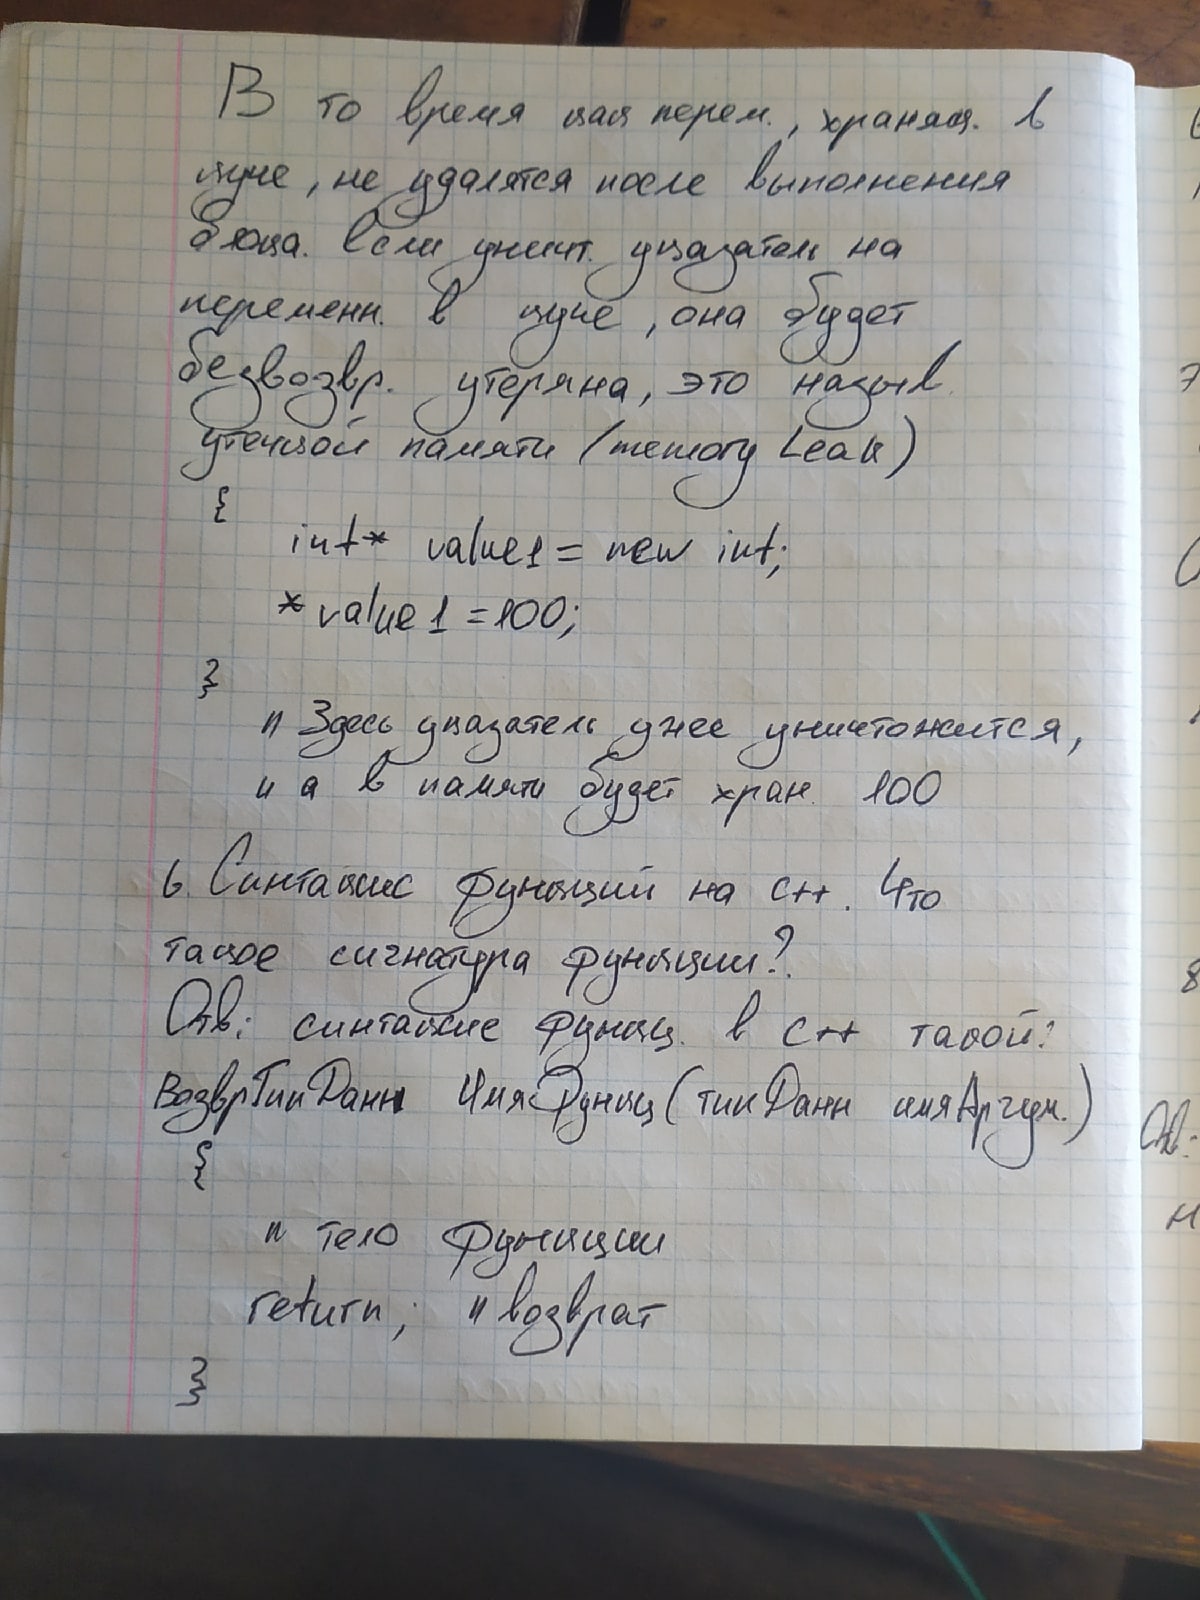 В то время как перем., хранящ. в
куче, не удалятся после выполнения
блока. Если уничт. указатель на
переменн. в куче, она будет
безвозвр. утеряна, это назыв.
утечкой памяти (memory Leak)
{
int* value1 = new int;
*value1 = 100;
}
// Здесь указатель уже уничтожится,
// а в памяти будет хран. 100
6. Синтаксис функций на с++. Что
такое сигнатура функции?
Отв: синтаксис функц. в с++ такой:
ВозврТипДанн ИмяФункц(типДанн имяАргум.)
{
// тело функции
return; // возврат
}
7
8
Отв: